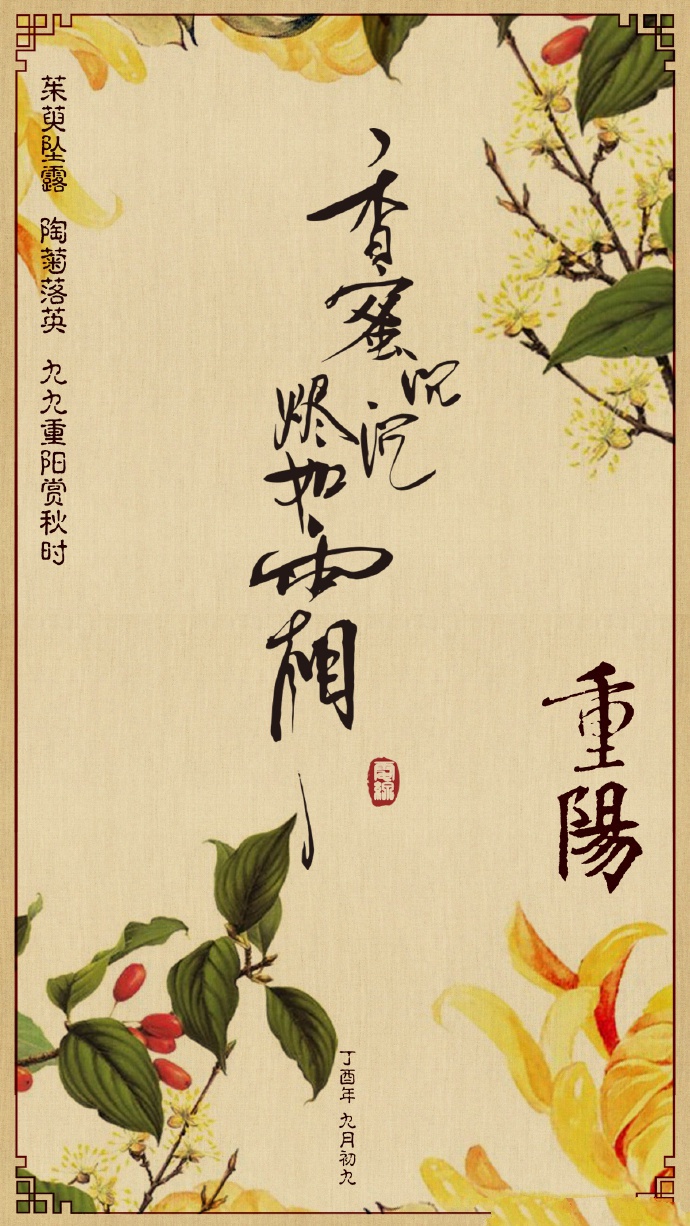 茱萸坠露　陶菊落英　九九重阳赏秋时
香蜜沉沉烬如霜
重陽
丁酉年 九月初九